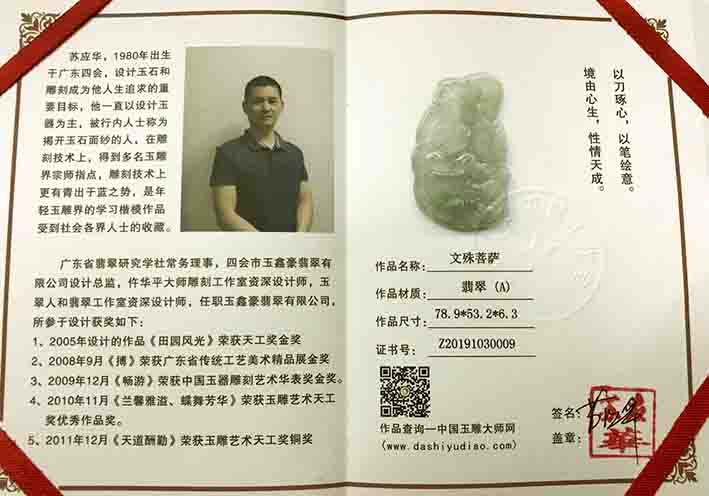 苏应华，1980年出生
于广东四会，设计玉石和
雕刻成为他人生追求的重
要目标，他一直以设计玉
器为主，被行内人士称为
揭开玉石面纱的人，在雕
刻技术上，得到多名玉雕
界宗师指点，雕刻技术上
更有青出于蓝之势，是年
轻玉雕界的学习楷模作品
受到社会各界人士的收藏。
广东省翡翠研究学社常务理事，四会市玉鑫豪翡翠有
限公司设计总监，仵华平大师雕刻工作室资深设计师，玉
翠人和翡翠工作室资深设计师，任职玉鑫豪翡翠有限公司，
所参于设计获奖如下：
1、2005年设计的作品《田园风光》荣获天工奖金奖
2、2008年9月《搏》荣获广东省传统工艺美术精品展金奖
3、2009年12月《畅游》荣获中国玉器雕刻艺术华表奖金奖。
4、2010年11月《兰馨雅溢、蝶舞芳华》荣获玉雕艺术天工
奖优秀作品奖。
5、2011年12月《天道酬勤》荣获玉雕艺术天工奖铜奖
以刀琢心，以笔绘意。
境由心生，性情天成。
作品名称：文殊菩萨
作品材质：翡翠（A）
作品尺寸：78.9*53.2*6.3
证书号：Z20191030009
作品查询一中国玉雕大师网
(www.dashiyudiao.com)
签名：
盖章：